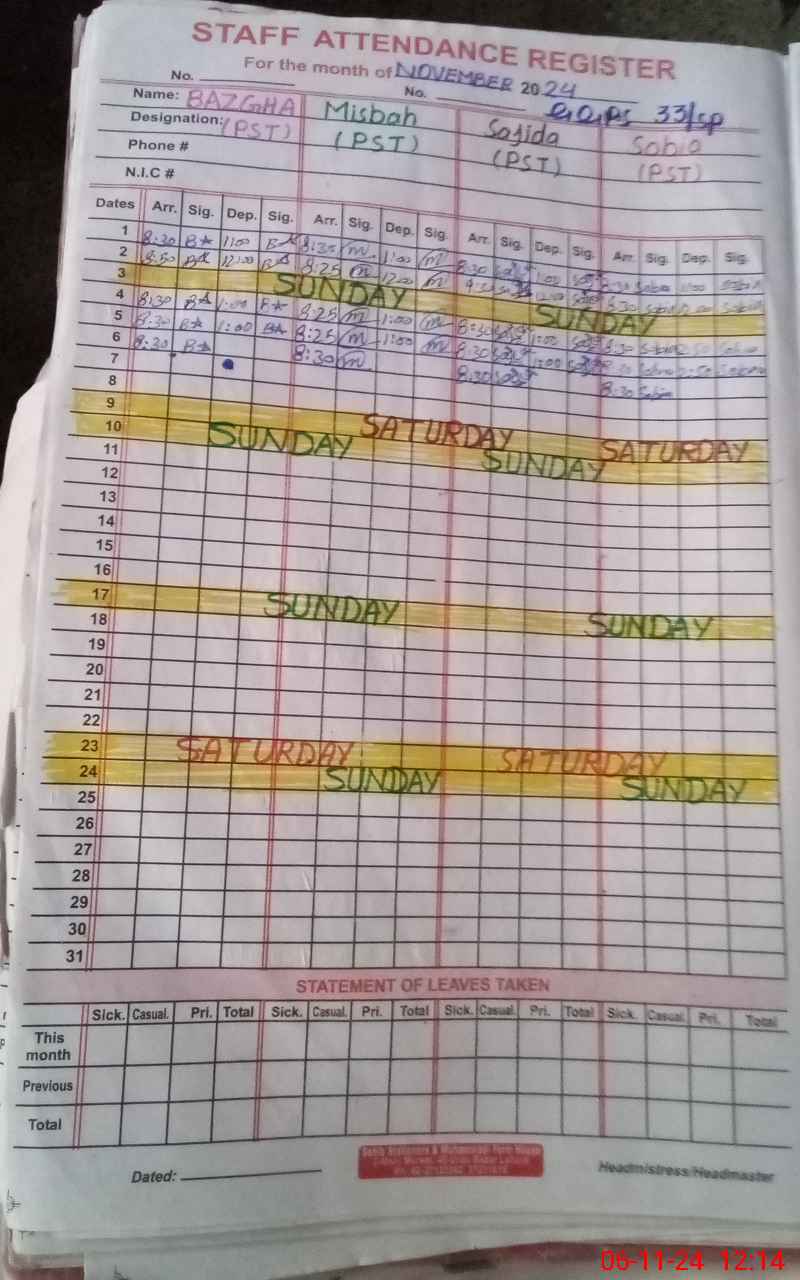 STAFF ATTENDANCE REGISTER
For the month of NOVEMBER 2024
No. No. G.G.P.S 33/SP
Name: BAZGHA Misbah Sajida Sabia
Designation: (PST) (PST) (PST) (PST)
Phone #
N.I.C #
Dates Arr. Sig. Dep. Sig. Arr. Sig. Dep. Sig. Arr. Sig. Dep. Sig. Arr. Sig. Dep. Sig.
1 8:30 1:00 8:35 m 1:00 m 8:30 1:00 8:30
2 8:50 12:00 8:25 m 12:00 m 8:30
3 SUNDAY SUNDAY
4 8:30 1:00 8:25 m 1:00 m 8:30 1:00 8:30
5 8:30 1:00 8:25 m 1:00 m 8:30 1:00 8:30
6 8:30 8:30 m 8:30 8:30
7
8
9 SATURDAY SATURDAY
10 SUNDAY SUNDAY
11
12
13
14
15
16
17 SUNDAY SUNDAY
18
19
20
21
22
23 SATURDAY SATURDAY
24 SUNDAY SUNDAY
25
26
27
28
29
30
31
STATEMENT OF LEAVES TAKEN
Sick. Casual. Pri. Total Sick. Casual. Pri. Total Sick. Casual. Pri. Total Sick. Casual. Pri. Total
This month
Previous
Total
Dated: Headmistress/Headmaster
06-11-24 12:14